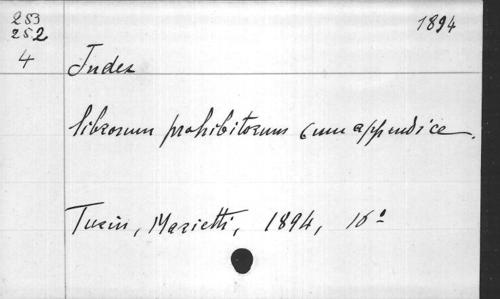 253
252
4
1894
Index
librorum prohibitorum cum appendice.
Turin, Marietti, 1894, 16°